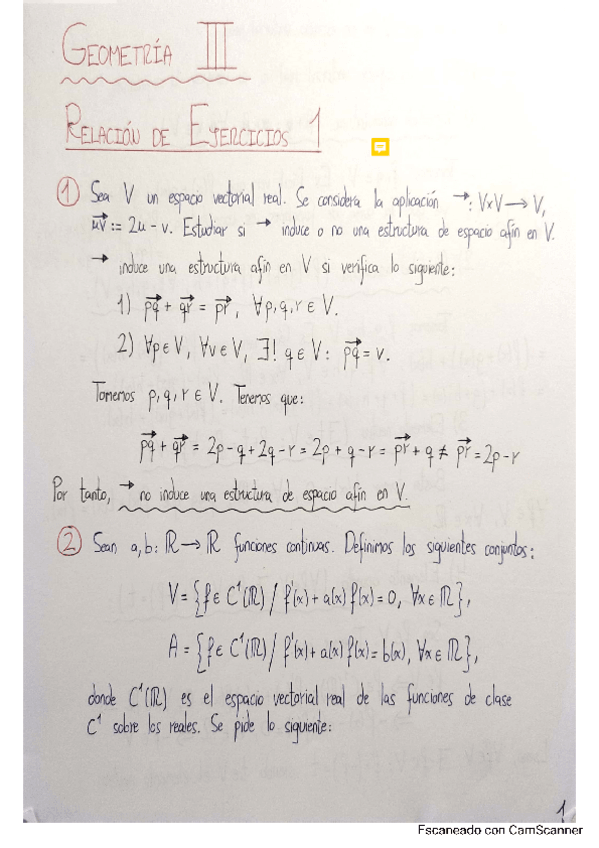 GEOMETRÍA III
RELACIÓN DE EJERCICIOS 1
① Sea V un espacio vectorial real. Se considera la aplicación →: V×V → V,
u͞v⃗ := 2u - v. Estudiar si → induce o no una estructura de espacio afín en V.
→ induce una estructura afín en V si verifica lo siguiente:
1) pq⃗ + qr⃗ = pr⃗, ∀p,q,r ∈ V.
2) ∀p∈V, ∀v∈V, ∃! q∈V: pq⃗ = v.
Tomemos p,q,r ∈ V. Tenemos que:
pq⃗ + qr⃗ = 2p-q+2q-r = 2p+q-r = pr⃗ + q ≠ pr⃗ = 2p-r
Por tanto, → no induce una estructura de espacio afín en V.
② Sean a,b: ℝ→ℝ funciones continuas. Definimos los siguientes conjuntos:
V = {f∈C¹(ℝ) / f'(x)+a(x)f(x)=0, ∀x∈ℝ},
A = {f∈C¹(ℝ) / f'(x)+a(x)f(x)=b(x), ∀x∈ℝ},
donde C¹(ℝ) es el espacio vectorial real de las funciones de clase
C¹ sobre los reales. Se pide lo siguiente:
1
Escaneado con CamScanner